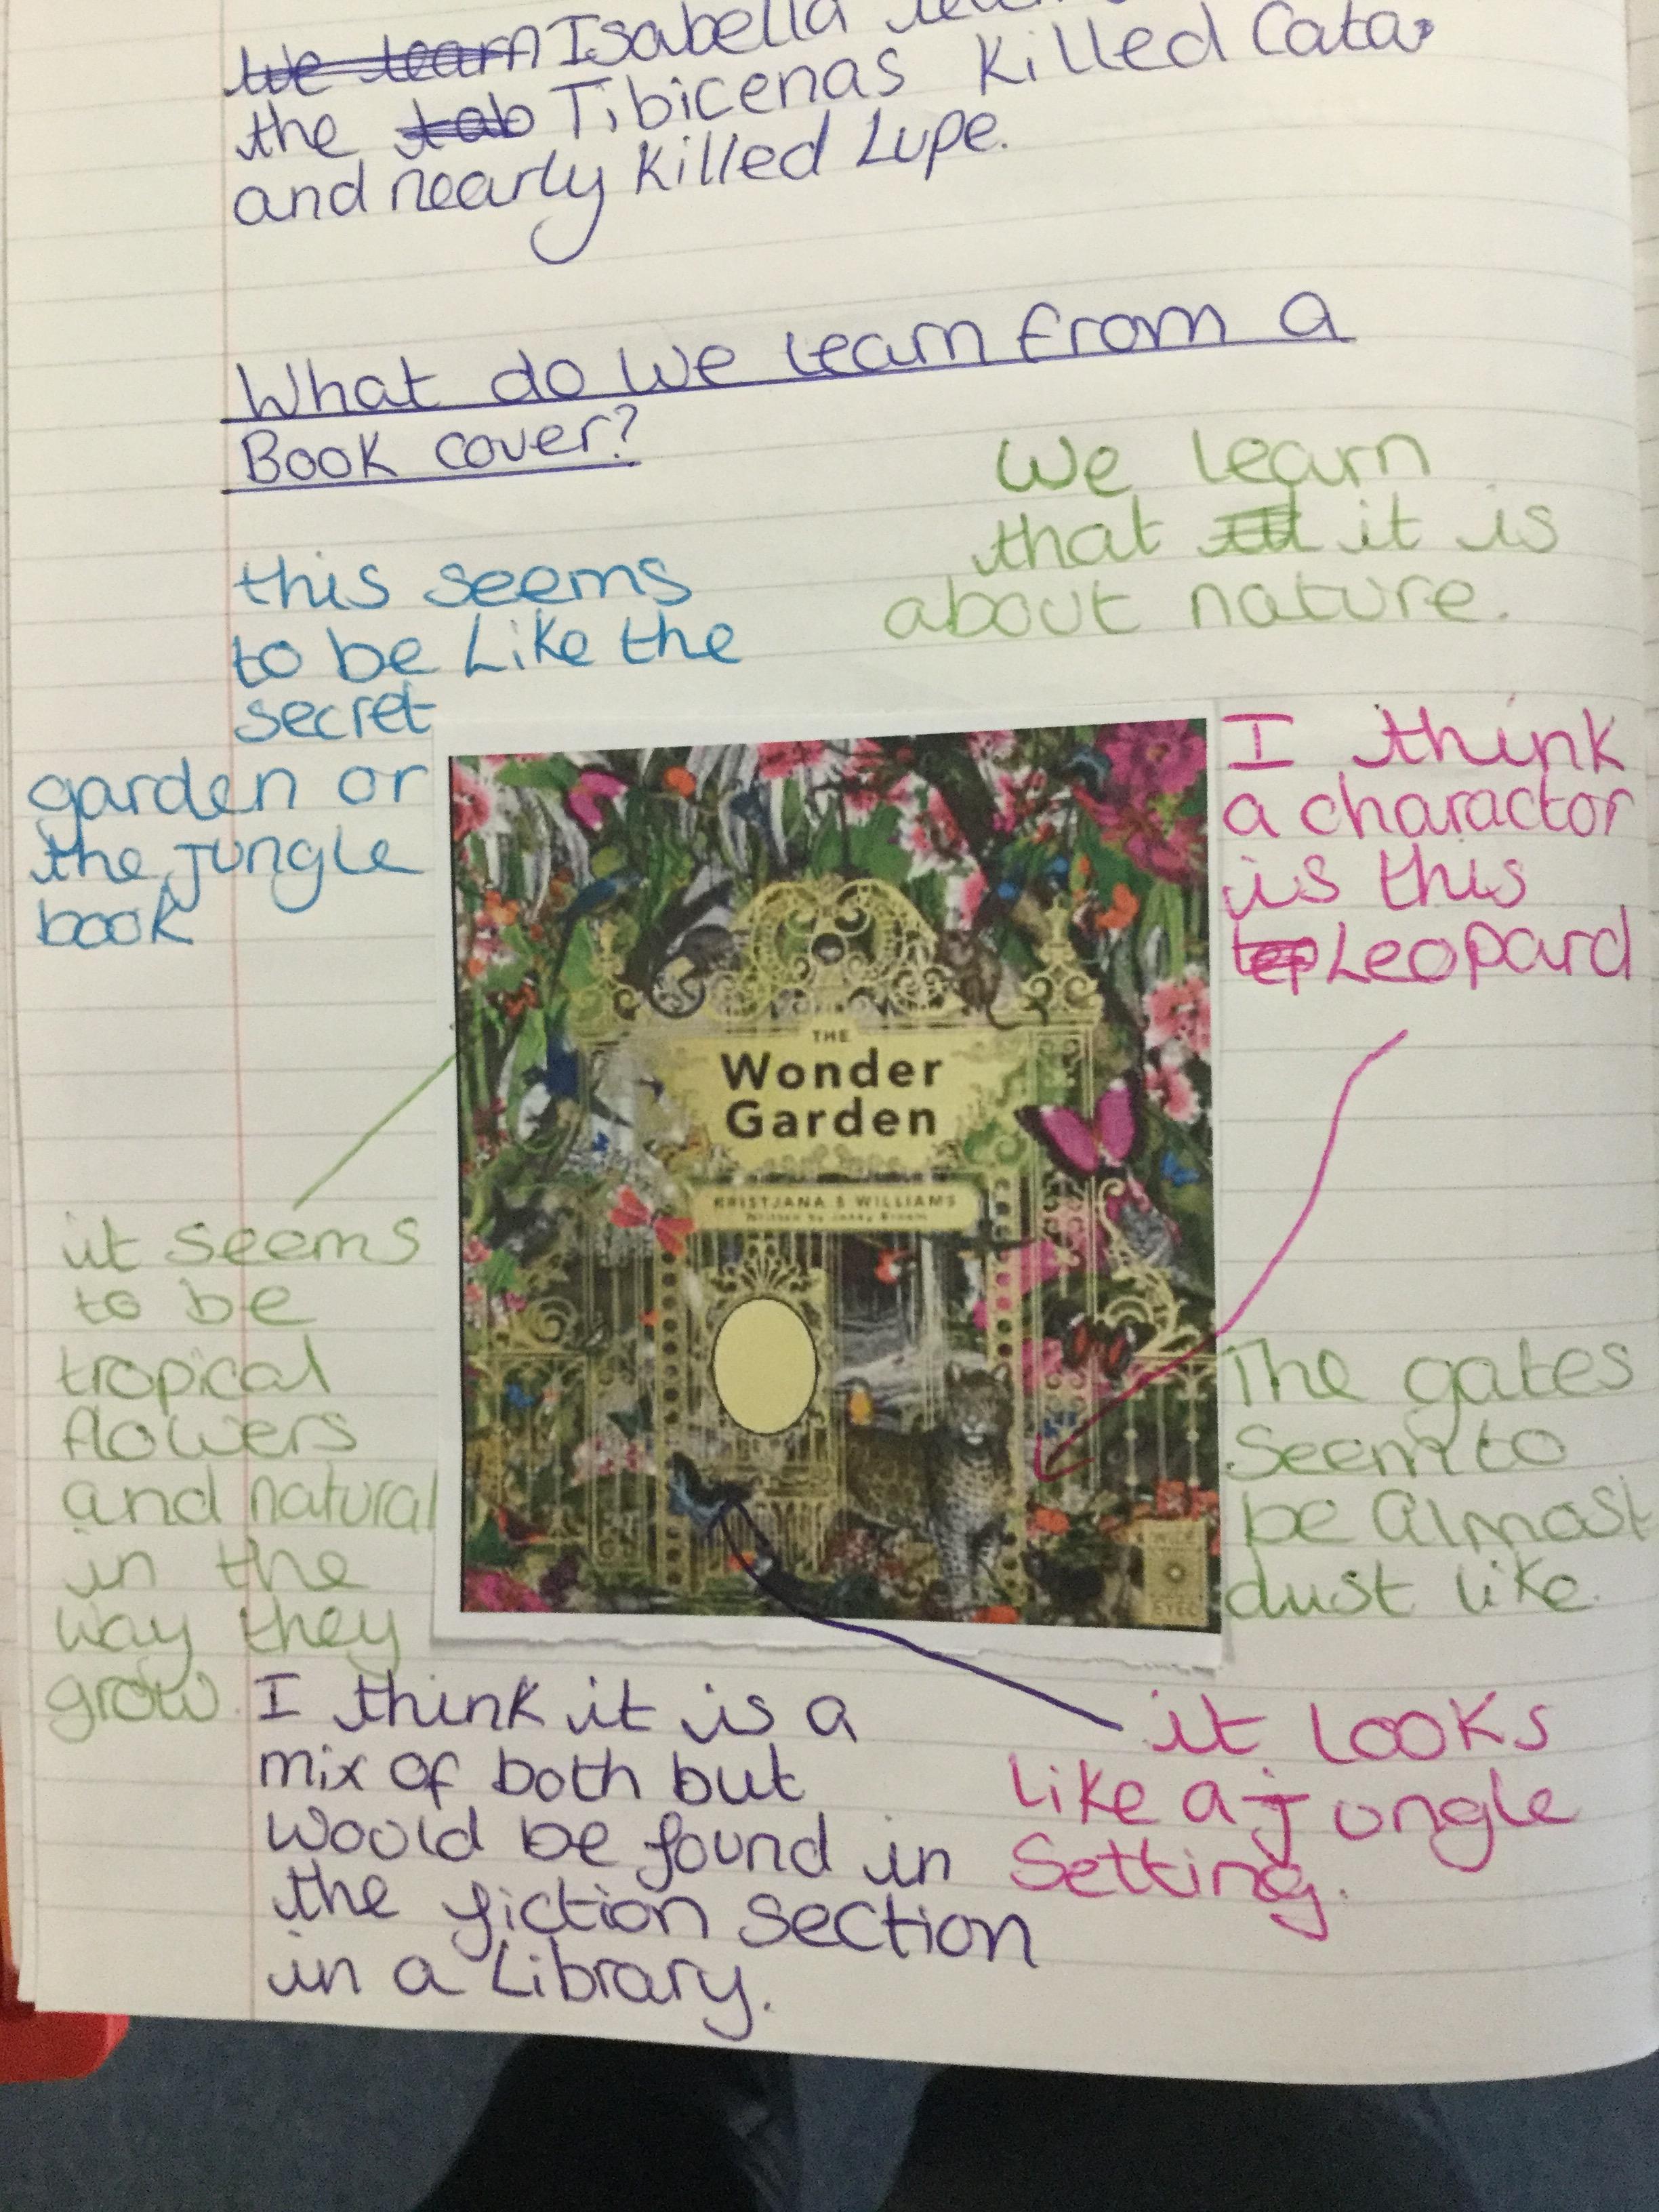 We learn Isabella
the tab Tibicenas Killed Cata.
and nearly Killed Lupe.
What do we learn from a
Book cover?
We learn
that it is
about nature.
this seems
to be Like the
secret
garden or
the jungle
book
I think
a charactor
is this
lep Leopard
THE
Wonder
Garden
KRISTJANA S WILLIAMS
Written by Jenny Broom
it seems
to be
tropical
flowers
and natural
in the
way they
grow.
The gates
Seem to
be Almost
dust like.
it Looks
Like a jungle
Setting.
I think it is a
mix of both but
would be found in
the fiction section
in a Library.